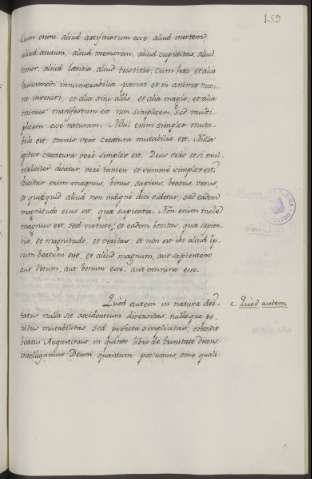 159
Cum enim aliud artificiosum esse aliud inertem
aliud acutum, aliud memorem, aliud cupiditas, aliud
timor, aliud laetitia, aliud tristitia, cum haec et alia
innumerabilia possint et in animae natura
inveniri, et alia sine aliis, et alia magis, et alia
minus, manifestum est non simplicem, sed multi
plicem esse naturam. Nihil enim simplex muta
bile est, omnis vero creatura mutabilis est. Nulla
igitur creatura vere simplex est. Deus vero etsi mul
tipliciter dicatur, vere tamen et summe simplex est;
dicitur enim magnus, bonus, sapiens, beatus, verus,
et quidquid aliud non indigne dici videtur, sed eadem
magnitudo eius est, quae sapientia. Non enim mole
magnus est, sed virtute, et eadem bonitas, quae sapien
tia, et magnitudo, et veritas, et non est ibi aliud ip
sum beatum esse, et aliud magnum, aut sapientem
aut verum, aut bonum esse, aut omnino esse.
Quod autem in natura divi
tatis nulla sit accidentium diversitas, nullaque pe
nitus mutabilitas, sed perfecta simplicitas, ostendit
beatus Augustinus in quinto libro de Trinitate dicens
intelligamus Deum quantum possumus, sine quali
c. Quod autem